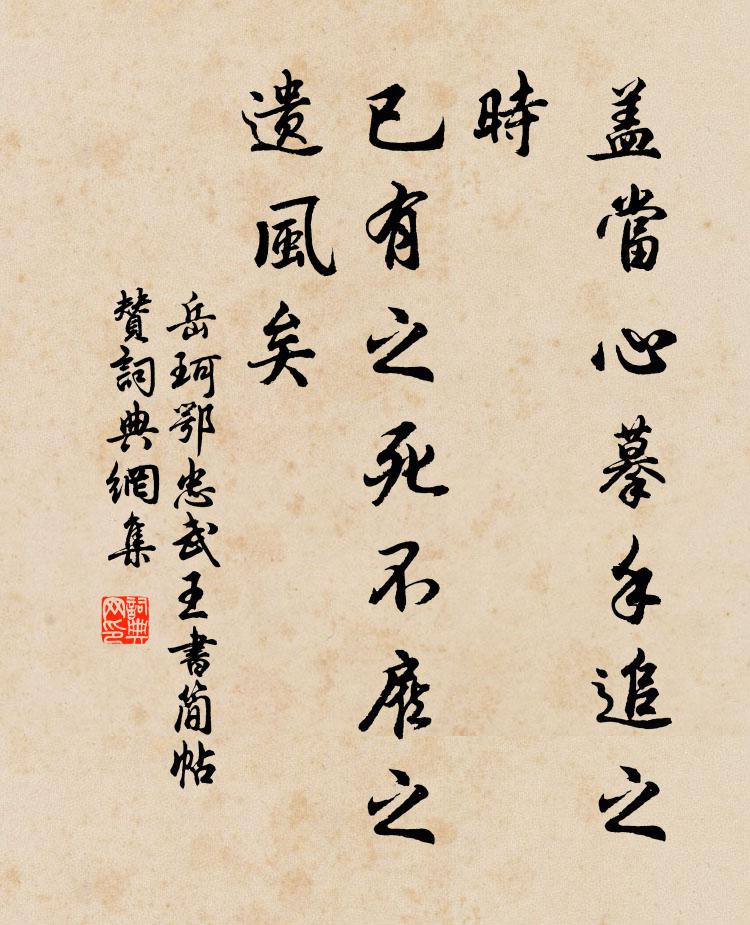 盖當心摹手追之
時
已有之死不之
遺風矣
岳珂鄂忠武王書簡帖
贊詞典網集
詞典
网印